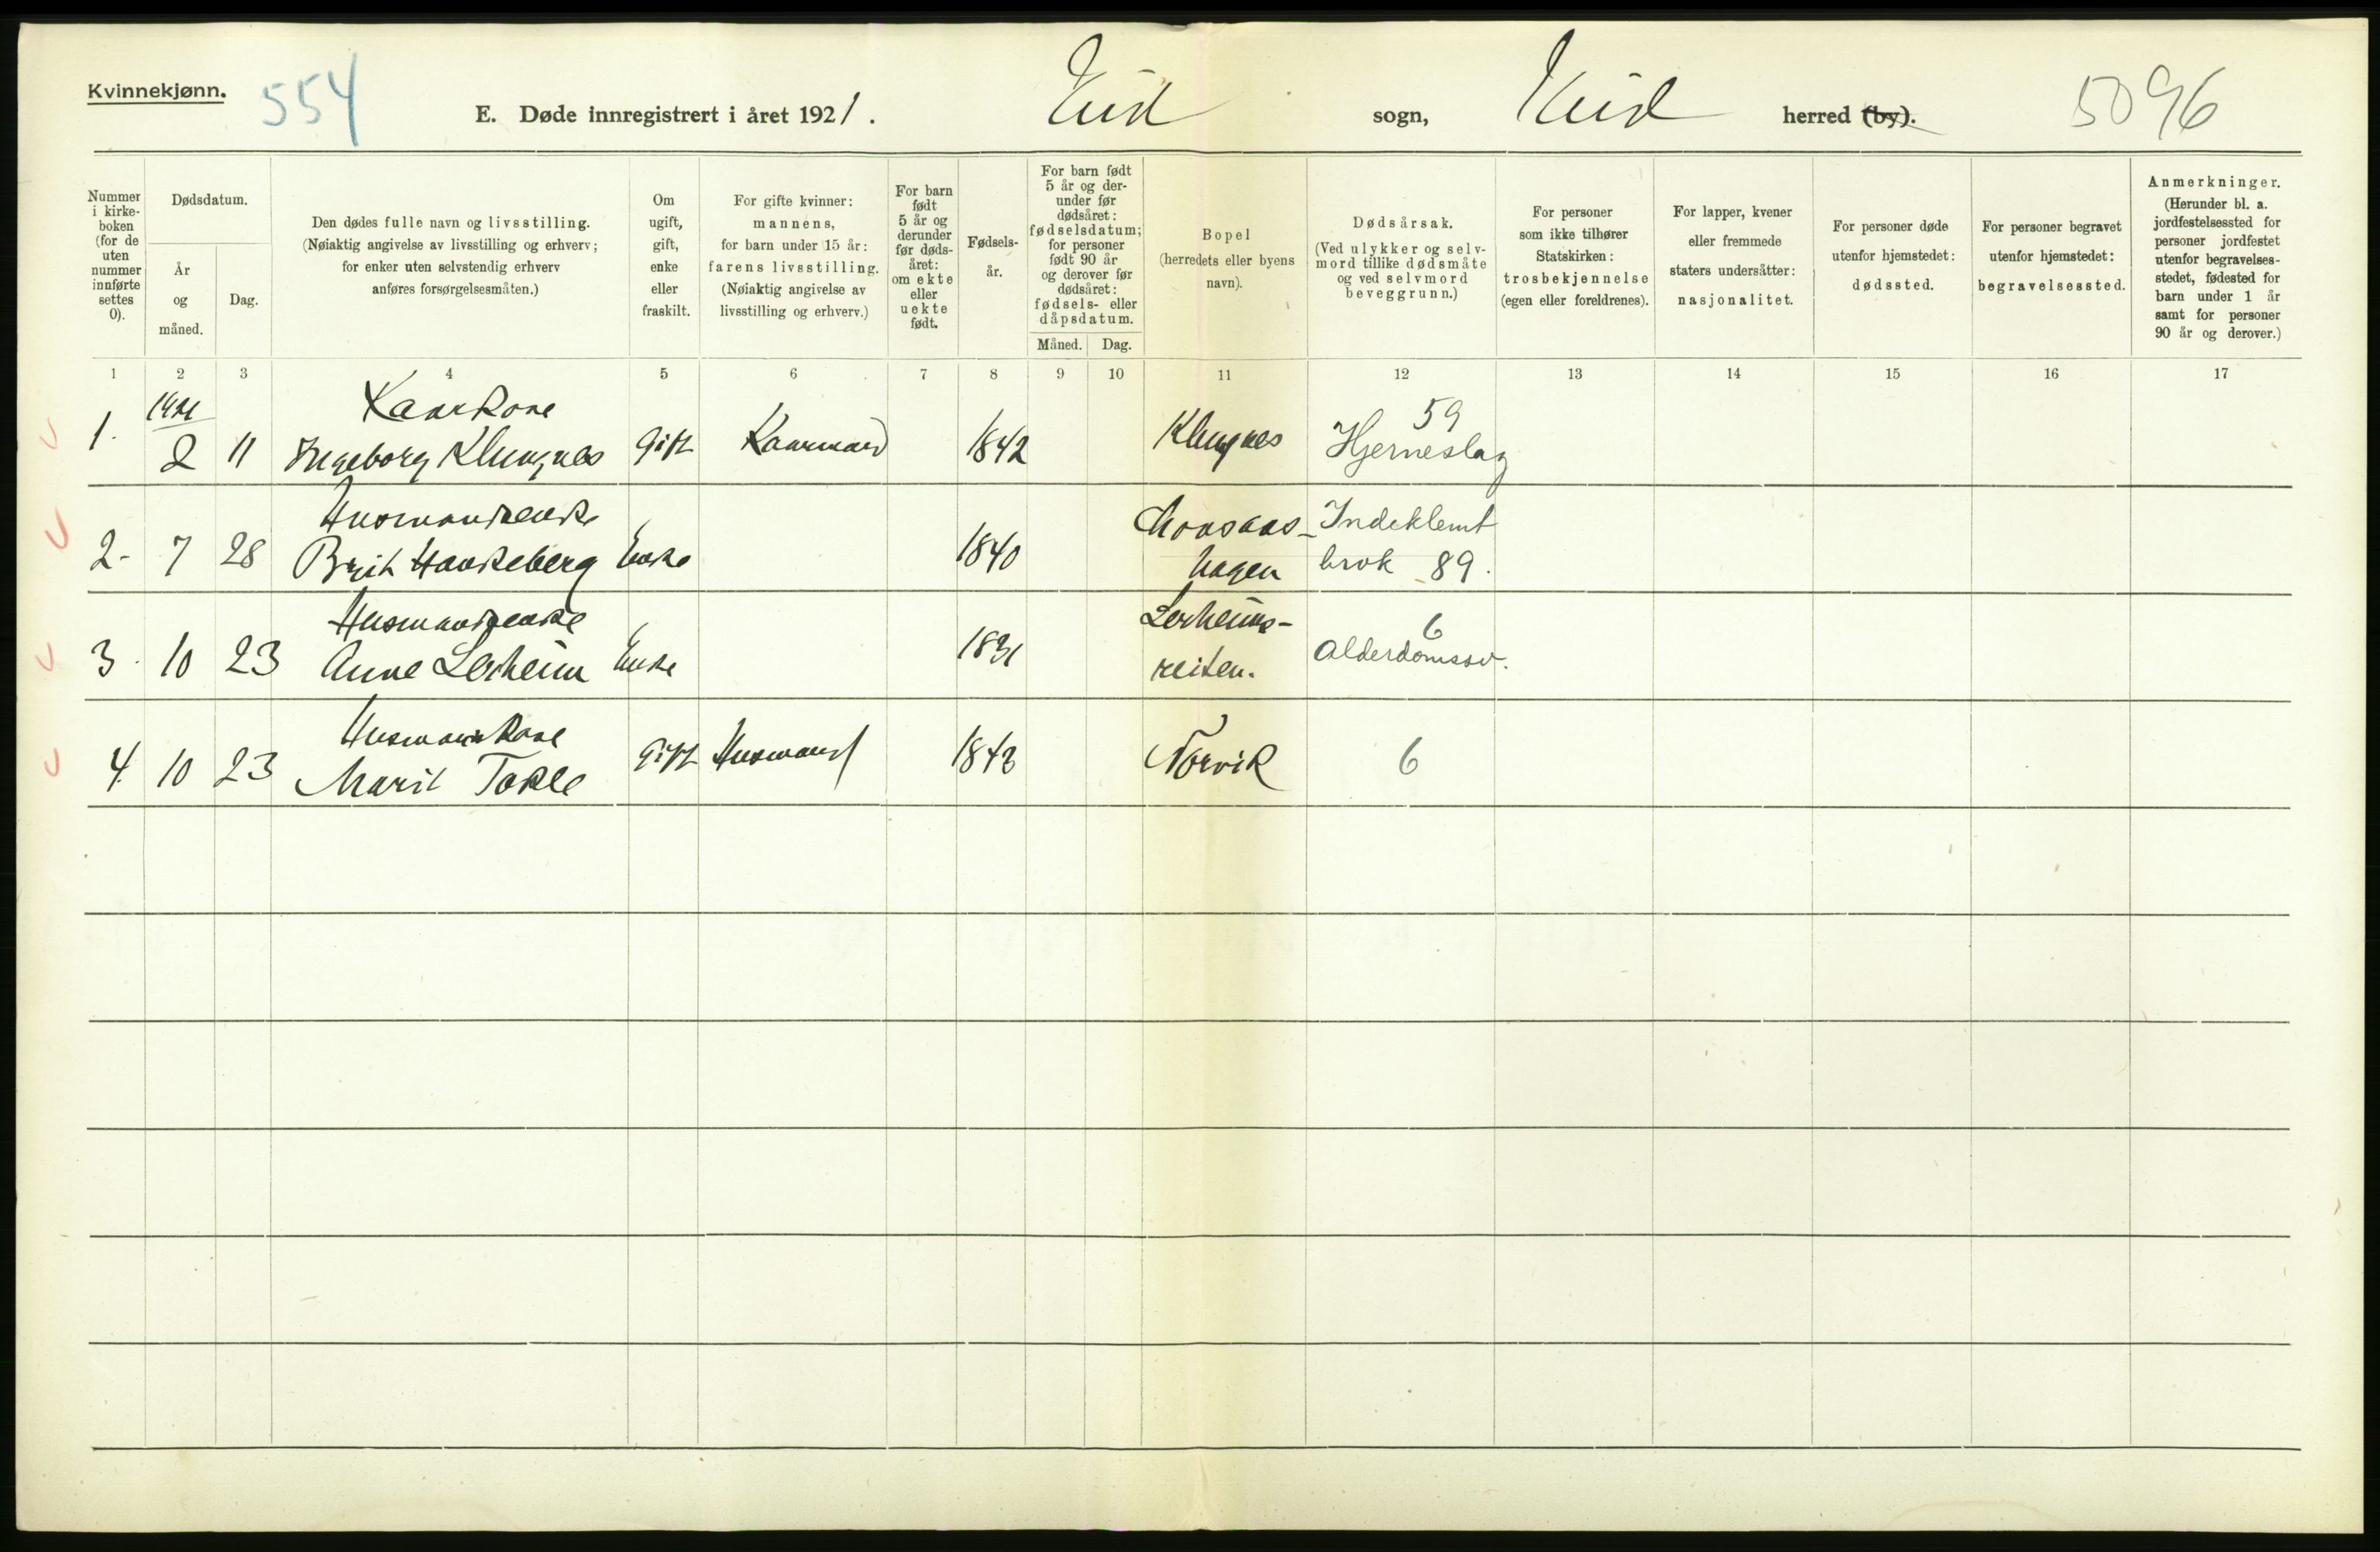 Kvinnekjønn.
554
E. Døde innregistrert i året 1921.
Eid sogn, Eid herred (by).
5096
Nummer i kirke- boken (for de uten nummer innførte settes 0).
Dødsdatum.
År og måned.
Dag.
Den dødes fulle navn og livsstilling.
(Nøiaktig angivelse av livsstilling og erhverv;
for enker uten selvstendig erhverv
anføres forsørgelsesmåten.)
Om ugift, gift, enke eller fraskilt.
For gifte kvinner:
mannens,
for barn under 15 år:
farens livsstilling.
(Nøiaktig angivelse av
livsstilling og erhverv.)
For barn født 5 år og derunder før døds- året: om ekte eller uekte født.
Fødsels- år.
For barn født 5 år og der- under før dødsåret: fødselsdatum; for personer født 90 år og derover før dødsåret: fødsels- eller dåpsdatum.
Måned. Dag.
Bopel
(herredets eller byens
navn).
Dødsårsak.
(Ved ulykker og selv-
mord tillike dødsmåte
og ved selvmord
beveggrunn.)
For personer
som ikke tilhører
Statskirken:
trosbekjennelse
(egen eller foreldrenes).
For lapper, kvener
eller fremmede
staters undersåtter:
nasjonalitet.
For personer døde
utenfor hjemstedet:
dødssted.
For personer begravet
utenfor hjemstedet:
begravelsessted.
Anmerkninger.
(Herunder bl. a.
jordfestelsessted for
personer jordfestet
utenfor begravelses-
stedet, fødested for
barn under 1 år
samt for personer
90 år og derover.)
1 2 3 4 5 6 7 8 9 10 11 12 13 14 15 16 17
1921 Kaarkone 59
1. 2 11 Ingeborg Klungnes Gift Kaarmand 1842 Klungnes Hjerneslag
Husmandsenke Monsaas- Indeklemt
2- 7 28 Brit Haukeberg Enke 1840 hagen brok 89.
Husmandsenke Lerheims- 6
3. 10 23 Anne Lerheim Enke 1831 reiten. Alderdomssv.
Husmandskone
4. 10 23 Marit Tokle Gift Husmand 1843 Norvik 6